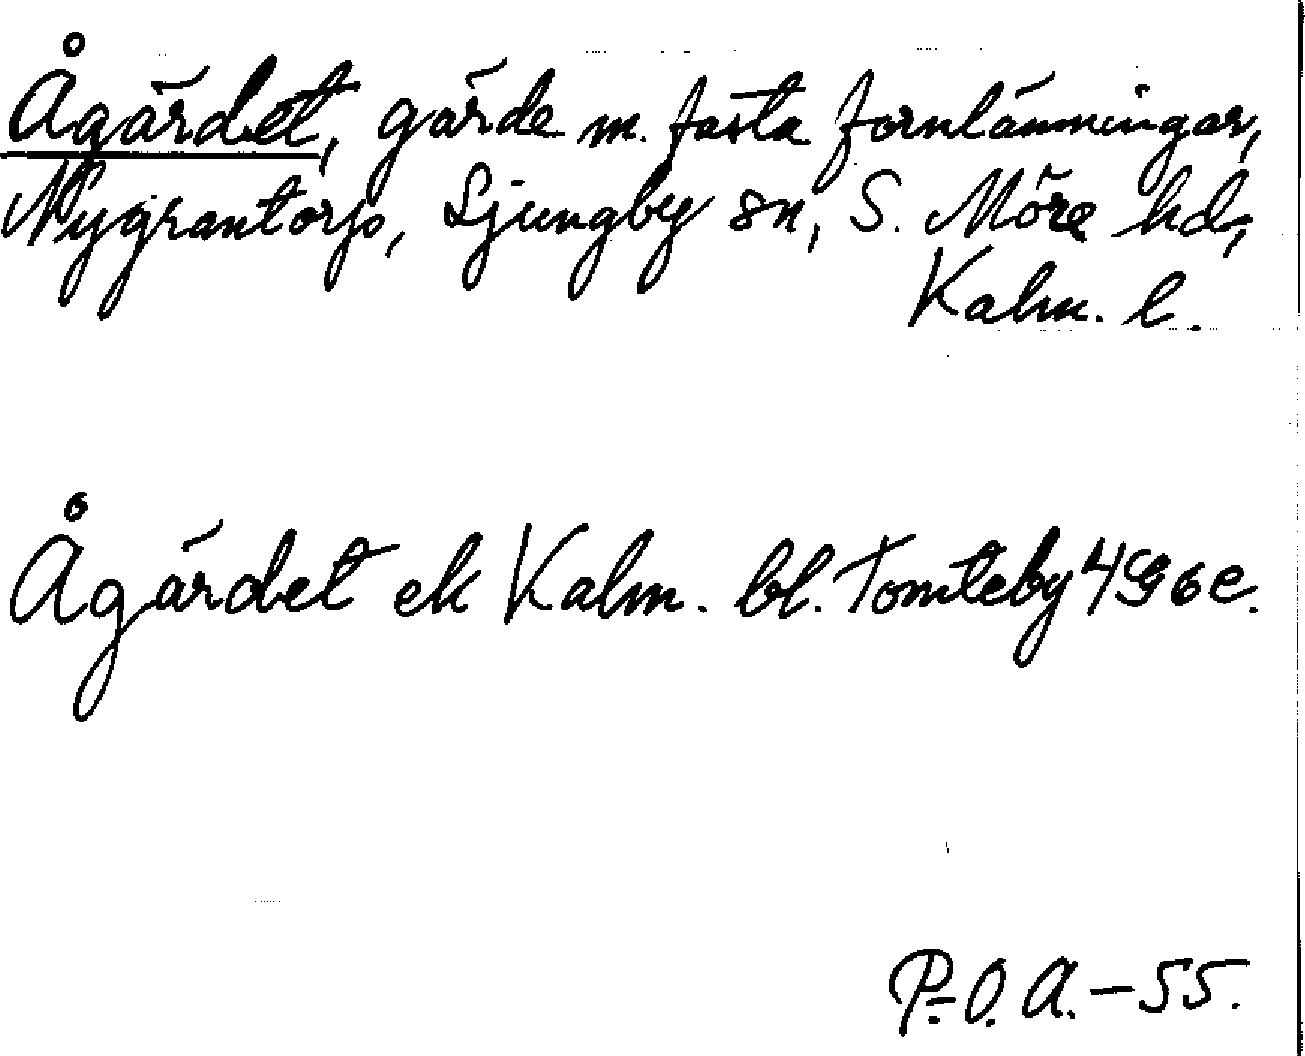 Ågärdet, gärde m. fasta fornlämningar,
Nygrantorp, Ljungby sn, S. Möre hd,
Kalm. l.
Ågärdet ek Kalm. bl. Tomteby 4G6e.
P.-O. A. - 55.